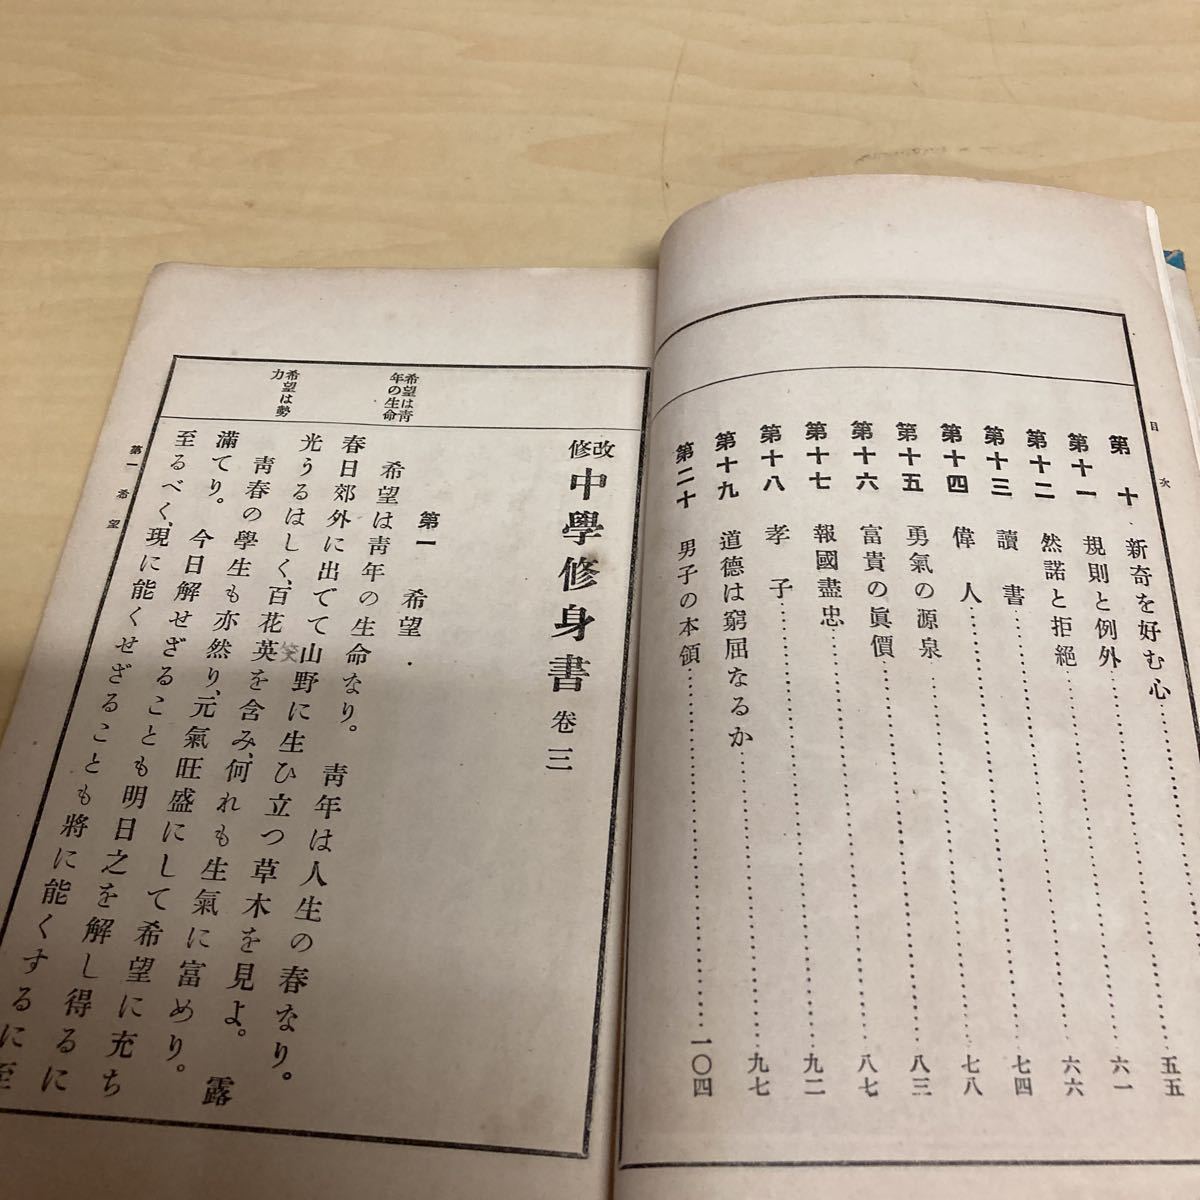 目次
第十 新奇を好む心 五五
第十一 規則と例外 六一
第十二 然諾と拒絶 六六
第十三 讀書 七四
第十四 偉人 七八
第十五 勇氣の源泉 八三
第十六 富貴の眞價 八七
第十七 報國盡忠 九二
第十八 孝子 九七
第十九 道德は窮屈なるか
第二十 男子の本領 一〇四
改修 中學修身書 卷三
第一 希望
希望は靑年の生命
希望は靑年の生命なり。 靑年は人生の春なり。
春日郊外に出でて山野に生ひ立つ草木を見よ。 露
希望は勢力
光うるはしく、百花英を含み、何れも生氣に富めり。
笑
靑春の學生も亦然り、元氣旺盛にして希望に充ち
滿てり。 今日解せざることも明日之を解し得るに
至るべく、現に能くせざることも將に能くするに至
第一 希望